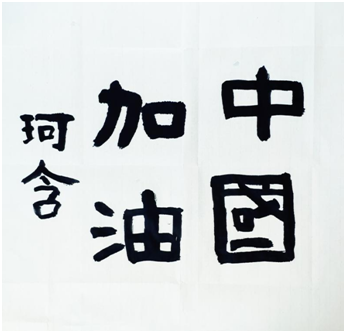 中國
加油
珂含